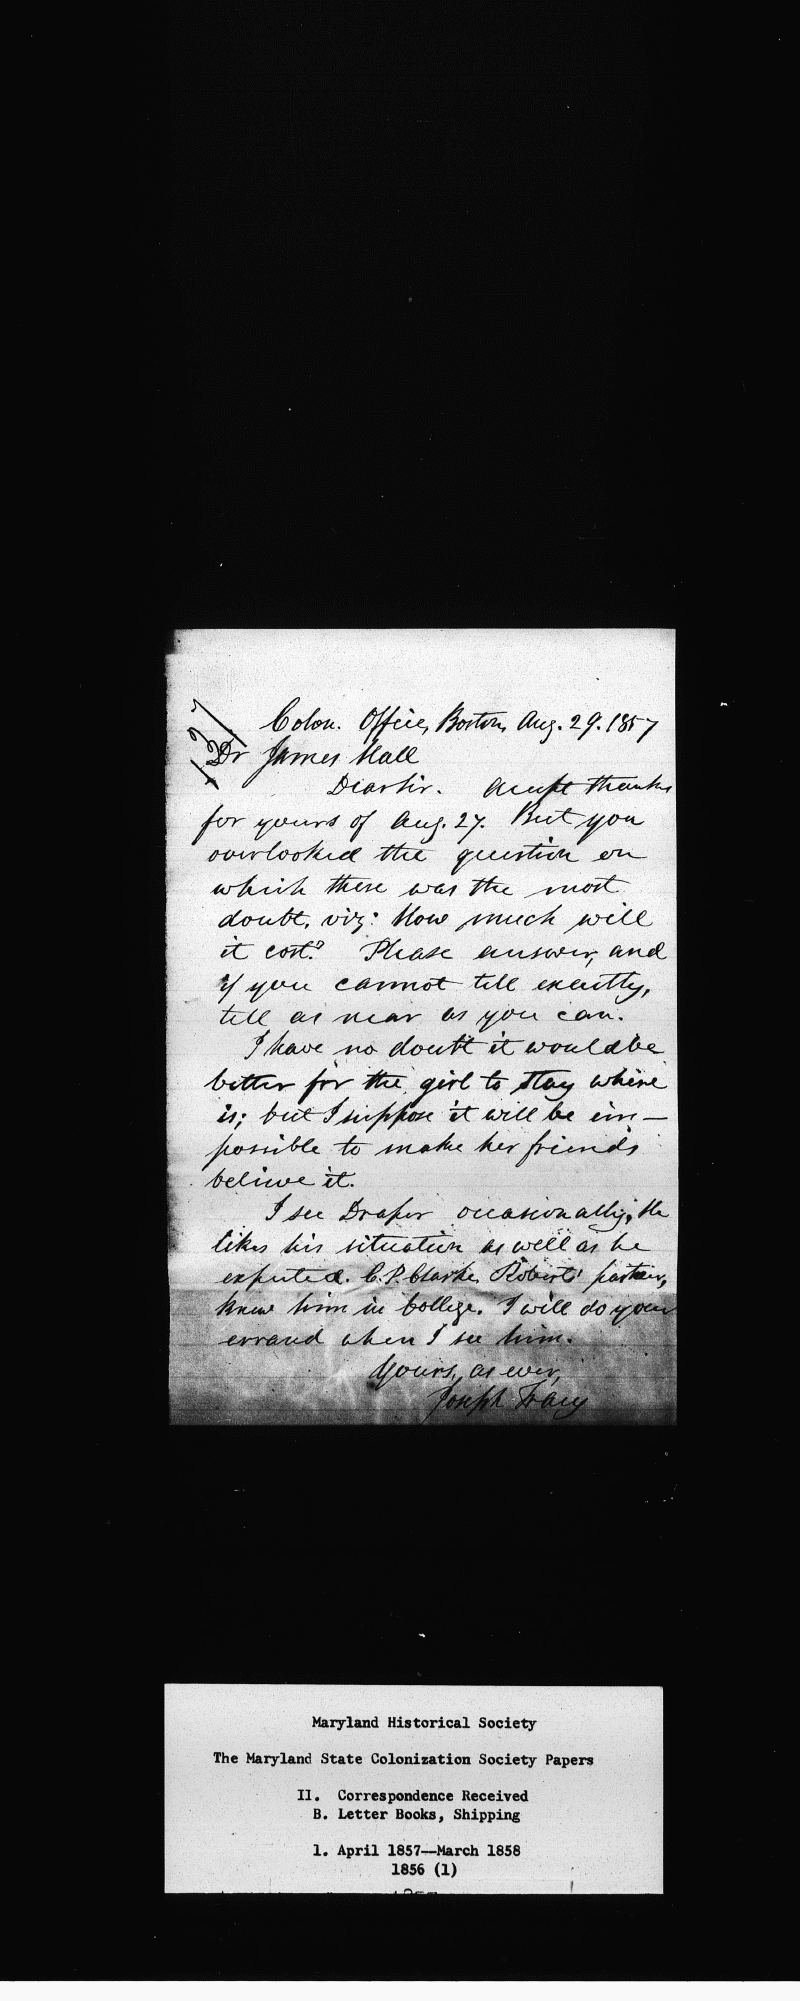 137
Colon. Office, Boston, Aug. 29. 1857
Dr James Hall
Dear Sir. Accept thanks
for yours of Aug. 27. But you
overlooked the question on
which there was the most
doubt, viz: How much will
it cost? Please answer, and
if you cannot tell exactly,
tell as near as you can.
I have no doubt it would be
better for the girl to stay where
is; but I suppose it will be im-
possible to make her friends
believe it.
I see Draper occasionally; He
likes his situation as well as he
expected. C. P. Clarke, Roberts' partner,
knew him in College. I will do your
errand when I see him.
Yours, as ever,
Joseph Tracy
Maryland Historical Society
The Maryland State Colonization Society Papers
II. Correspondence Received
B. Letter Books, Shipping
1. April 1857--March 1858
1856 (1)